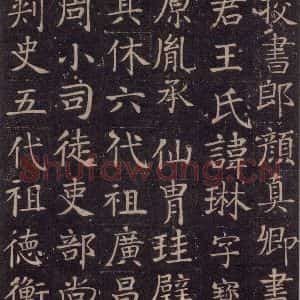 校書郎顏真卿書
君王氏諱琳字寶
原胤承仙胄珪璧
其休六代祖廣昌
周小司徒吏部尚
刺史五代祖德衡
Shufawang.CN